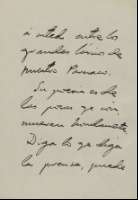 á usted entre los
grandes líricos de
nuestro Parnaso.
Su poema es de
los pocos que
Diga lo que diga
la prensa, puede